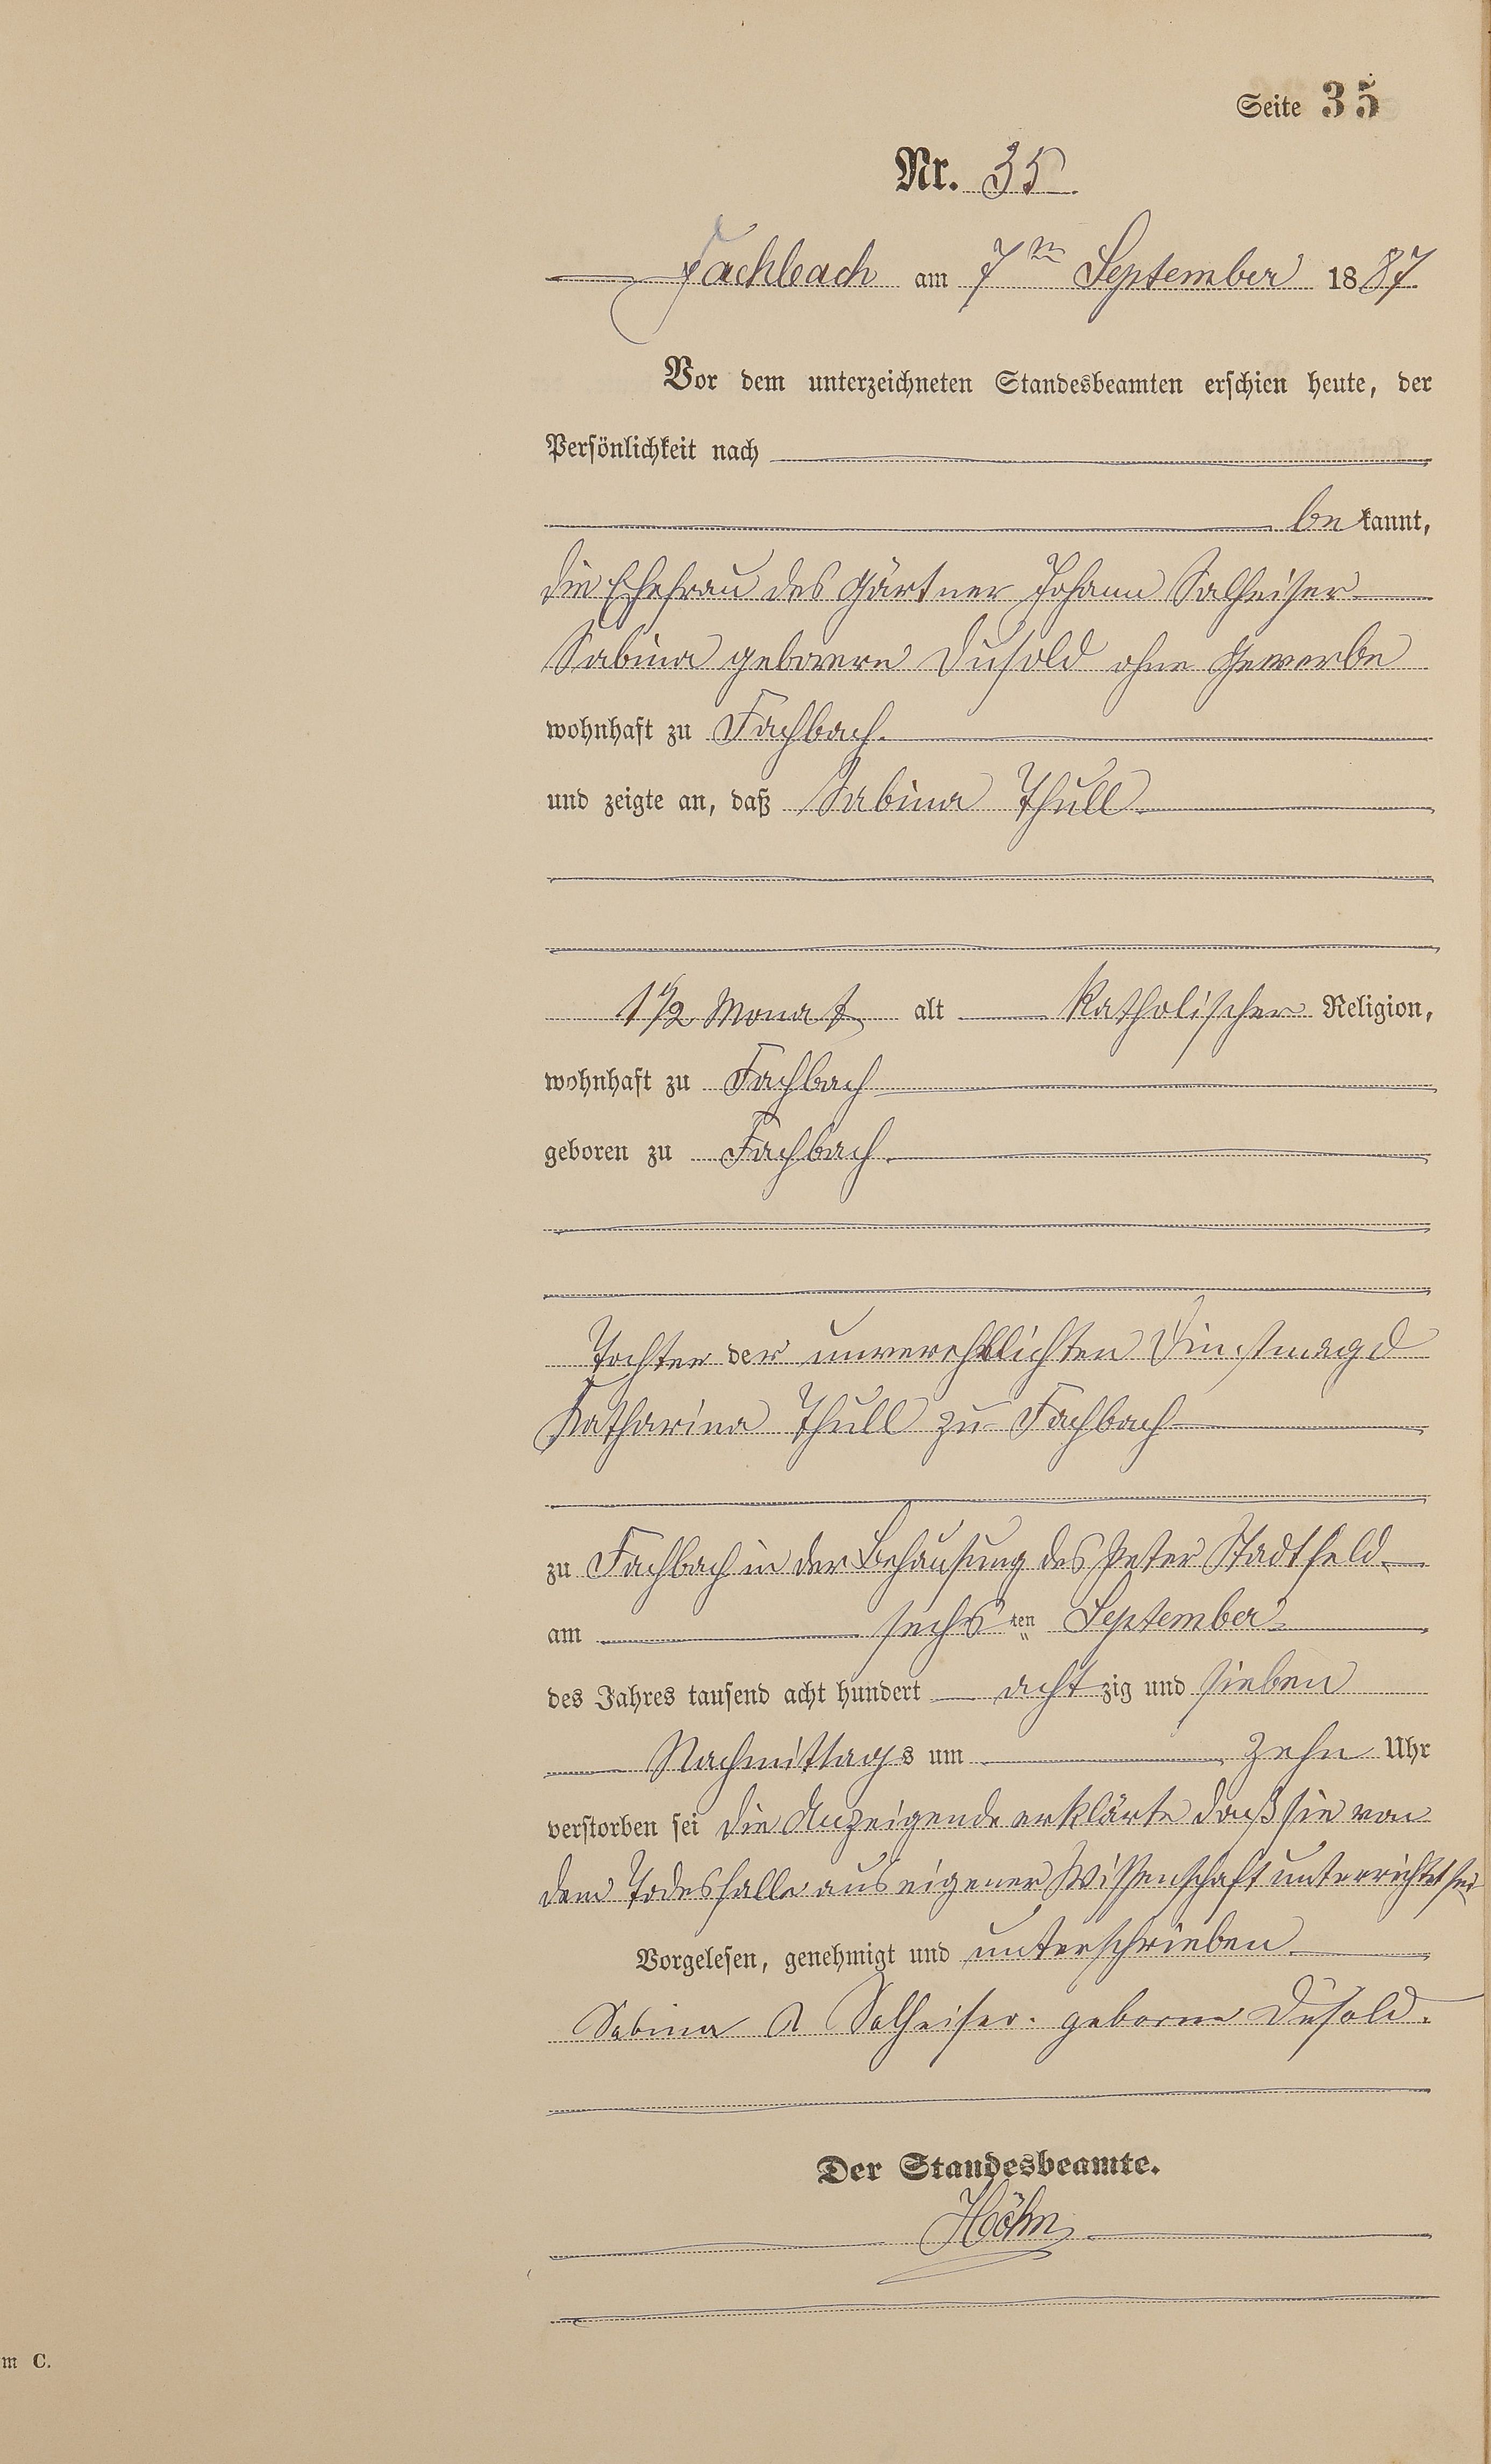 Seite 35
Nr. 35
Fachbach am 7ten September 1887
Vor dem unterzeichneten Standesbeamten erschien heute, der
Persönlichkeit nach
bekannt,
die Ehefrau des Gärtner Johann Salheiser
Sabina geborene Dusold ohne Gewerbe
wohnhaft zu Fachbach.
und zeigte an, daß Sabina Thull
1 1/2 Monat alt katholischer Religion,
wohnhaft zu Fachbach
geboren zu Fachbach.
Tochter der unverehlichten Dinstmagd
Katharina Thull zu Fachbach
zu Fachbach in der Behausung des Peter Stadtfeld
am sechsten September
des Jahres tausend acht hundert achtzig und sieben
Nachmittags um zehn Uhr
verstorben sei die Anzeigende erklärte daß sie von
dem Todesfalle aus eigener Wissenschaft unterrichtet sei
Vorgelesen, genehmigt und unterschrieben
Sabina Salheiser. geborne Dusold.
Der Standesbeamte.
Höhn
m C.